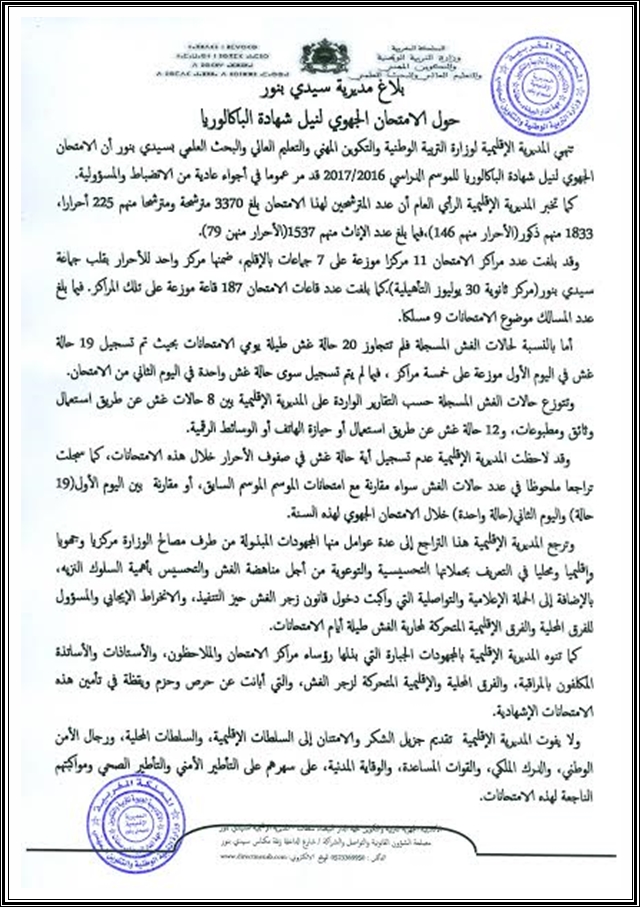 المملكة المغربية
وزارة التربية الوطنية
والتكوين المهني
والتعليم العالي والبحث العلمي
بلاغ مديرية سيدي بنور
حول الامتحان الجهوي لنيل شهادة الباكالوريا
تنهي المديرية الإقليمية لوزارة التربية الوطنية والتكوين المهني والتعليم العالي والبحث العلمي بسيدي بنور أن الامتحان
الجهوي لنيل شهادة الباكالوريا للموسم الدراسي 2017/2016 قد مر عموما في أجواء عادية من الانضباط والمسؤولية.
كما تخبر المديرية الإقليمية الرأي العام أن عدد المترشحين لهذا الامتحان بلغ 3370 مترشحة ومترشحا منهم 225 أحرارا،
1833 منهم ذكور(الأحرار منهم 146)،فيما بلغ عدد الإناث منهم 1537(الأحرار منهن 79).
وقد بلغت عدد مراكز الامتحان 11 مركزا موزعة على 7 جماعات بالإقليم، ضمنها مركز واحد للأحرار بقلب جماعة
سيدي بنور(مركز ثانوية 30 يوليوز التأهيلية).كما بلغت عدد قاعات الامتحان 187 قاعة موزعة على تلك المراكز. فيما بلغ
عدد المسالك موضوع الامتحانات 9 مسلكا.
أما بالنسبة لحالات الغش المسجلة فلم تتجاوز 20 حالة غش طيلة يومي الامتحانات بحيث تم تسجيل 19 حالة
غش في اليوم الأول موزعة على خمسة مراكز ، فيما لم يتم تسجيل سوى حالة غش واحدة في اليوم الثاني من الامتحان.
وتتوزع حالات الغش المسجلة حسب التقارير الواردة على المديرية الإقليمية بين 8 حالات غش عن طريق استعمال
وثائق ومطبوعات، و12 حالة غش عن طريق استعمال أو حيازة الهاتف أو الوسائط الرقمية.
وقد لاحظت المديرية الإقليمية عدم تسجيل أية حالة غش في صفوف الأحرار خلال هذه الامتحانات، كما سجلت
تراجعا ملحوظا في عدد حالات الغش سواء مقارنة مع امتحانات الموسم الموسم السابق، أو مقارنة بين اليوم الأول(19
حالة) واليوم الثاني(حالة واحدة) خلال الامتحان الجهوي لهذه السنة.
وترجع المديرية الإقليمية هذا التراجع إلى عدة عوامل منها المجهودات المبذولة من طرف مصالح الوزارة مركزيا وجهويا
وإقليميا ومحليا في التعريف بحملاتها التحسيسية والتوعوية من أجل مناهضة الغش والتحسيس بأهمية السلوك النزيه،
بالإضافة إلى الحملة الإعلامية والتواصلية التي واكبت دخول قانون زجر الغش حيز التنفيذ، والانخراط الإيجابي والمسؤول
للفرق المحلية والفرق الإقليمية المتحركة لمحاربة الغش طيلة أيام الامتحانات.
كما تنوه المديرية الإقليمية بالمجهودات الجبارة التي بذلها رؤساء مراكز الامتحان والملاحظون، والأستاذات والأساتذة
المكلفون بالمراقبة، والفرق المحلية والإقليمية المتحركة لزجر الغش، والتي أبانت عن حرص وحزم ويقظة في تأمين هذه
الامتحانات الإشهادية.
ولا يفوت المديرية الإقليمية تقديم جزيل الشكر والامتنان إلى السلطات الإقليمية، والسلطات المحلية، ورجال الأمن
الوطني، والدرك الملكي، والقوات المساعدة، والوقاية المدنية، على سهرهم على التأطير الأمني والتأطير الصحي ومواكبتهم
الناجعة لهذه الامتحانات.
مصلحة الشؤون القانونية والتواصل والشراكة / شارع الداخلة زنقة مكناس سيدي بنور